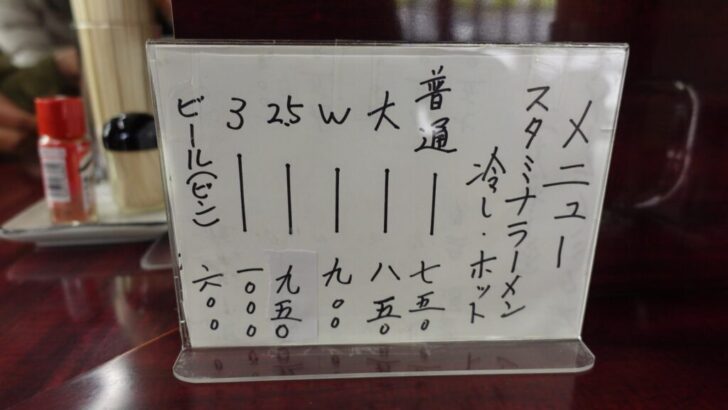 メニュー
スタミナラーメン
冷し・ホット
普通 | 七五〇
大 | 八五〇
W | 九〇〇
2.5 | 九五〇
3 | 一〇〇〇
ビール(ビン) 六〇〇